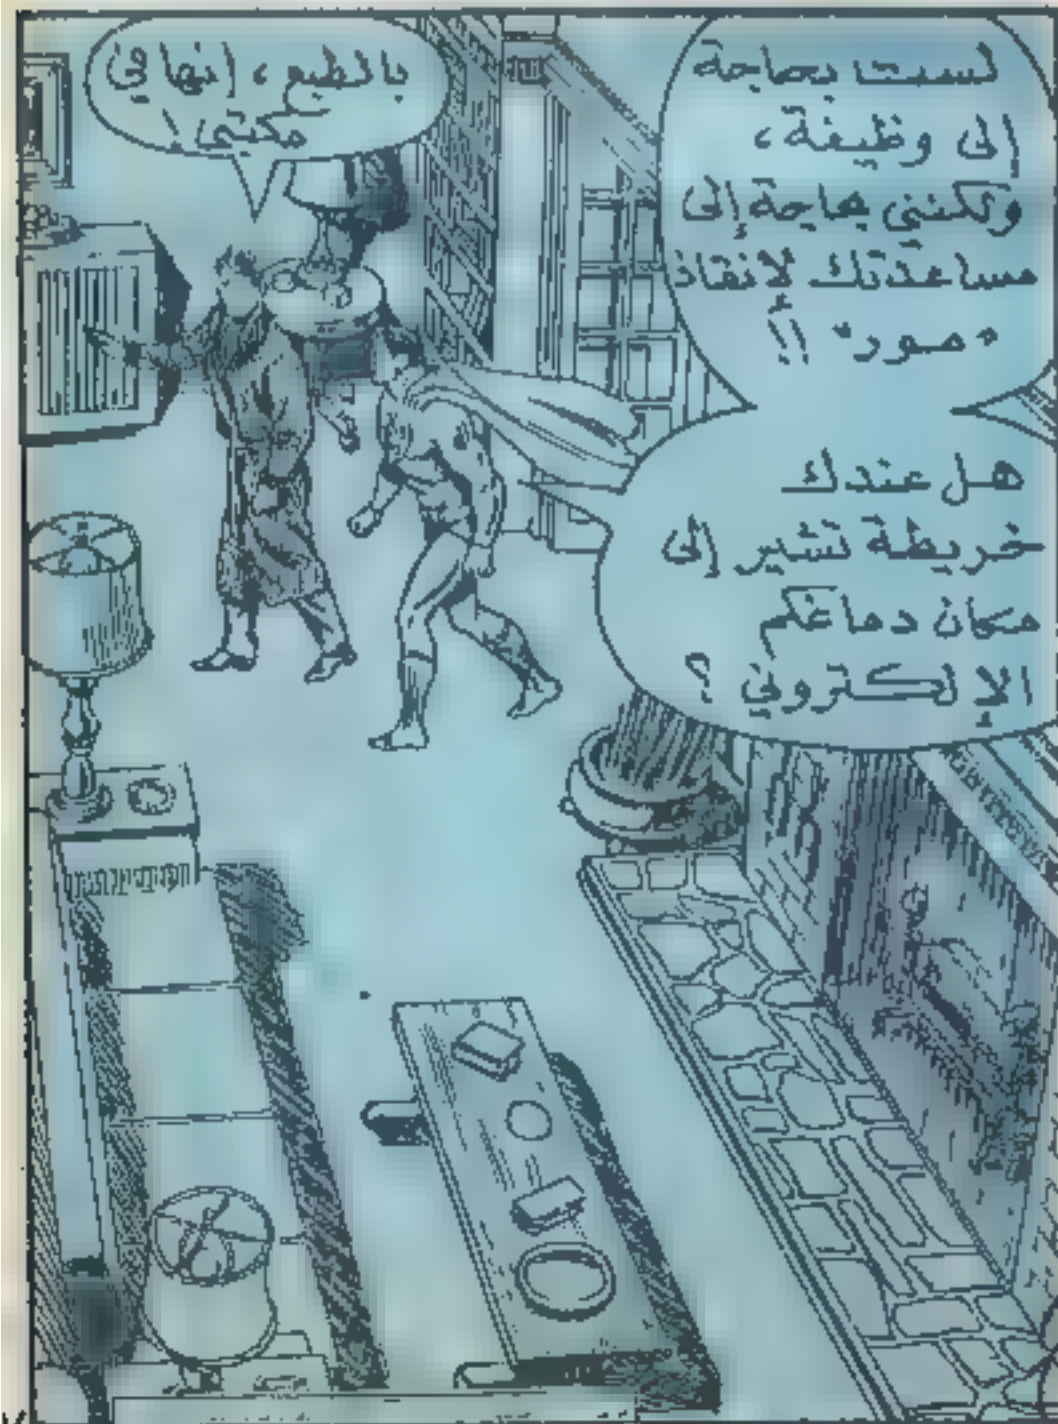 لست بحاجة
إلى وظيفة،
ولكنني بحاجة إلى
مساعدتك لإنقاذ
"مور" !!
هل عندك
خريطة تشير إلى
مكان دماغكم
الإلكتروني ؟
بالطبع، إنها في
مكتبي !